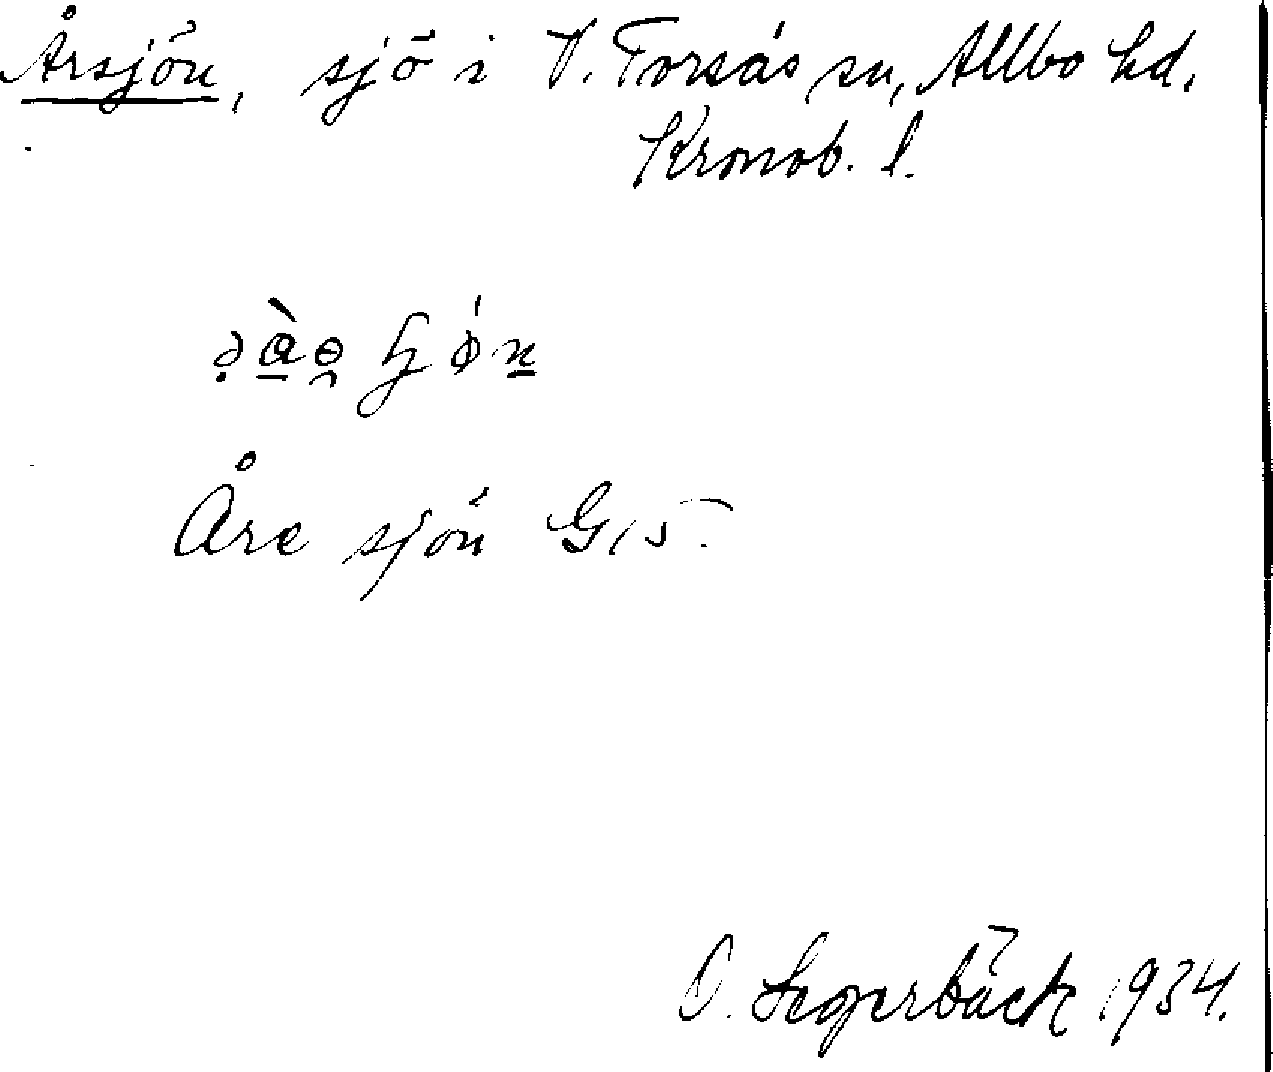 Årsjön, sjö i V. Torsås sn, Allbo hd.
Kronob. l.
Åre sjön G15.
O. Segerbäck 1934.